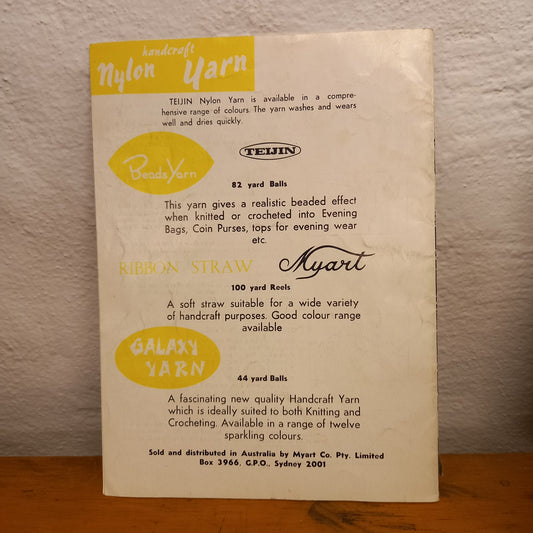 handcraft
Nylon Yarn
TEIJIN Nylon Yarn is available in a compre-
hensive range of colours. The yarn washes and wears
well and dries quickly.
TEIJIN
Beads Yarn
82 yard Balls
This yarn gives a realistic beaded effect
when knitted or crocheted into Evening
Bags, Coin Purses, tops for evening wear
etc.
RIBBON STRAW Myart
100 yard Reels
A soft straw suitable for a wide variety
of handcraft purposes. Good colour range
available
GALAXY
YARN
44 yard Balls
A fascinating new quality Handcraft Yarn
which is ideally suited to both Knitting and
Crocheting. Available in a range of twelve
sparkling colours.
Sold and distributed in Australia by Myart Co. Pty. Limited
Box 3966, G.P.O., Sydney 2001